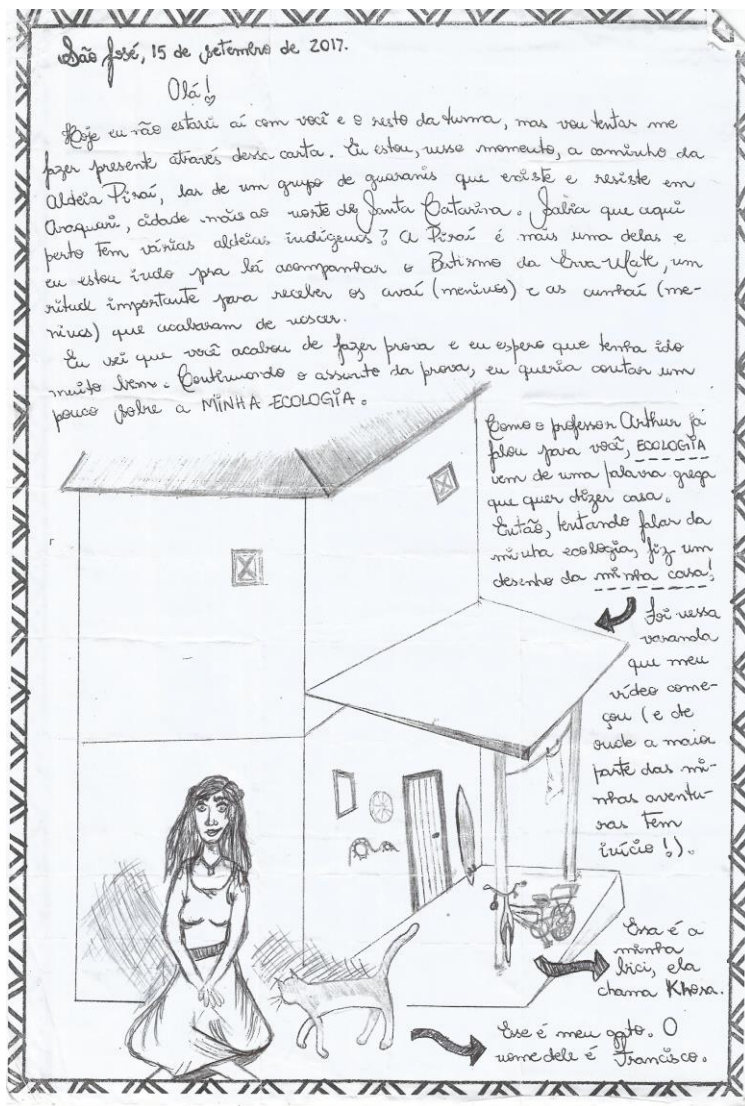 São José, 15 de setembro de 2017.
Olá!
Hoje eu não estarei aí com você e o resto da turma, mas vou tentar me
fazer presente através dessa carta. Eu estou, nesse momento, a caminho da
Aldeia Piraí, lar de um grupo de guaranis que existe e resiste em
Araquari, cidade mais ao norte de Santa Catarina. Sabia que aqui
perto tem várias aldeias indígenas? A Piraí é mais uma delas e
eu estou indo pra lá acompanhar o Batismo da Erva-Mate, um
ritual importante para receber os avaí (meninos) e as cunhaí (me-
ninas) que acabaram de nascer.
Eu sei que você acabou de fazer prova e eu espero que tenha ido
muito bem. Continuando o assunto da prova, eu queria contar um
pouco sobre a MINHA ECOLOGIA.
Como o professor Arthur já
falou para você, ECOLOGIA
vem de uma palavra grega
que quer dizer casa.
Então, tentando falar da
minha ecologia, fiz um
desenho da minha casa!
Foi nessa
varanda
que meu
vídeo come-
çou (e de
onde a maior
parte das mi-
nhas aventu-
ras tem
início!).
Essa é a
minha
bici, ela
chama Khosa.
Esse é meu gato. O
nome dele é Francisco.